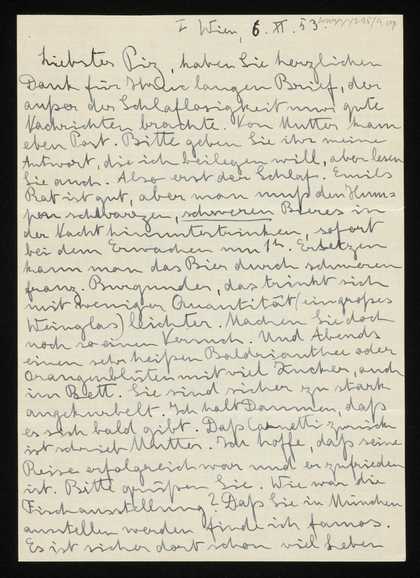 I Wien, 6. XI. 53.
Liebster Piz, haben Sie herzlichen
Dank für Ihren langen Brief, der
außer der Schlaflosigkeit nur gute
Nachrichten brachte. Von Mutter kam
eben Post. Bitte geben Sie ihr meine
Antwort, die ich beilegen will, aber lesen
Sie auch. Also erst der Schlaf. Emils
Rat ist gut, aber man muß den Hum-
pen schwarzen, schweren Bieres in
der Nacht hinuntertrinken, sofort
bei dem Erwachen um 1h. Ersetzen
kann man das Bier durch schweren
franz. Burgunder, das trinkt sich
mit weniger Quantität (ein großes
Weinglas) leichter. Machen Sie doch
noch so einen Versuch. Und Abends
einen sehr heißen Baldrianthee oder
Orangenblüten mit viel Zucker, auch
im Bett. Sie sind sicher zu stark
angekurbelt. Ich halt Daumen, daß
es sich bald gibt. Daß Canetti zurück
ist schrieb Mutter. Ich hoffe, daß seine
Reise erfolgreich war und er zufrieden
ist. Bitte grüßen Sie. Wie war die
Fischausstellung? Daß Sie in München
ausstellen werden finde ich famos.
Es ist sicher dort schon viel Leben